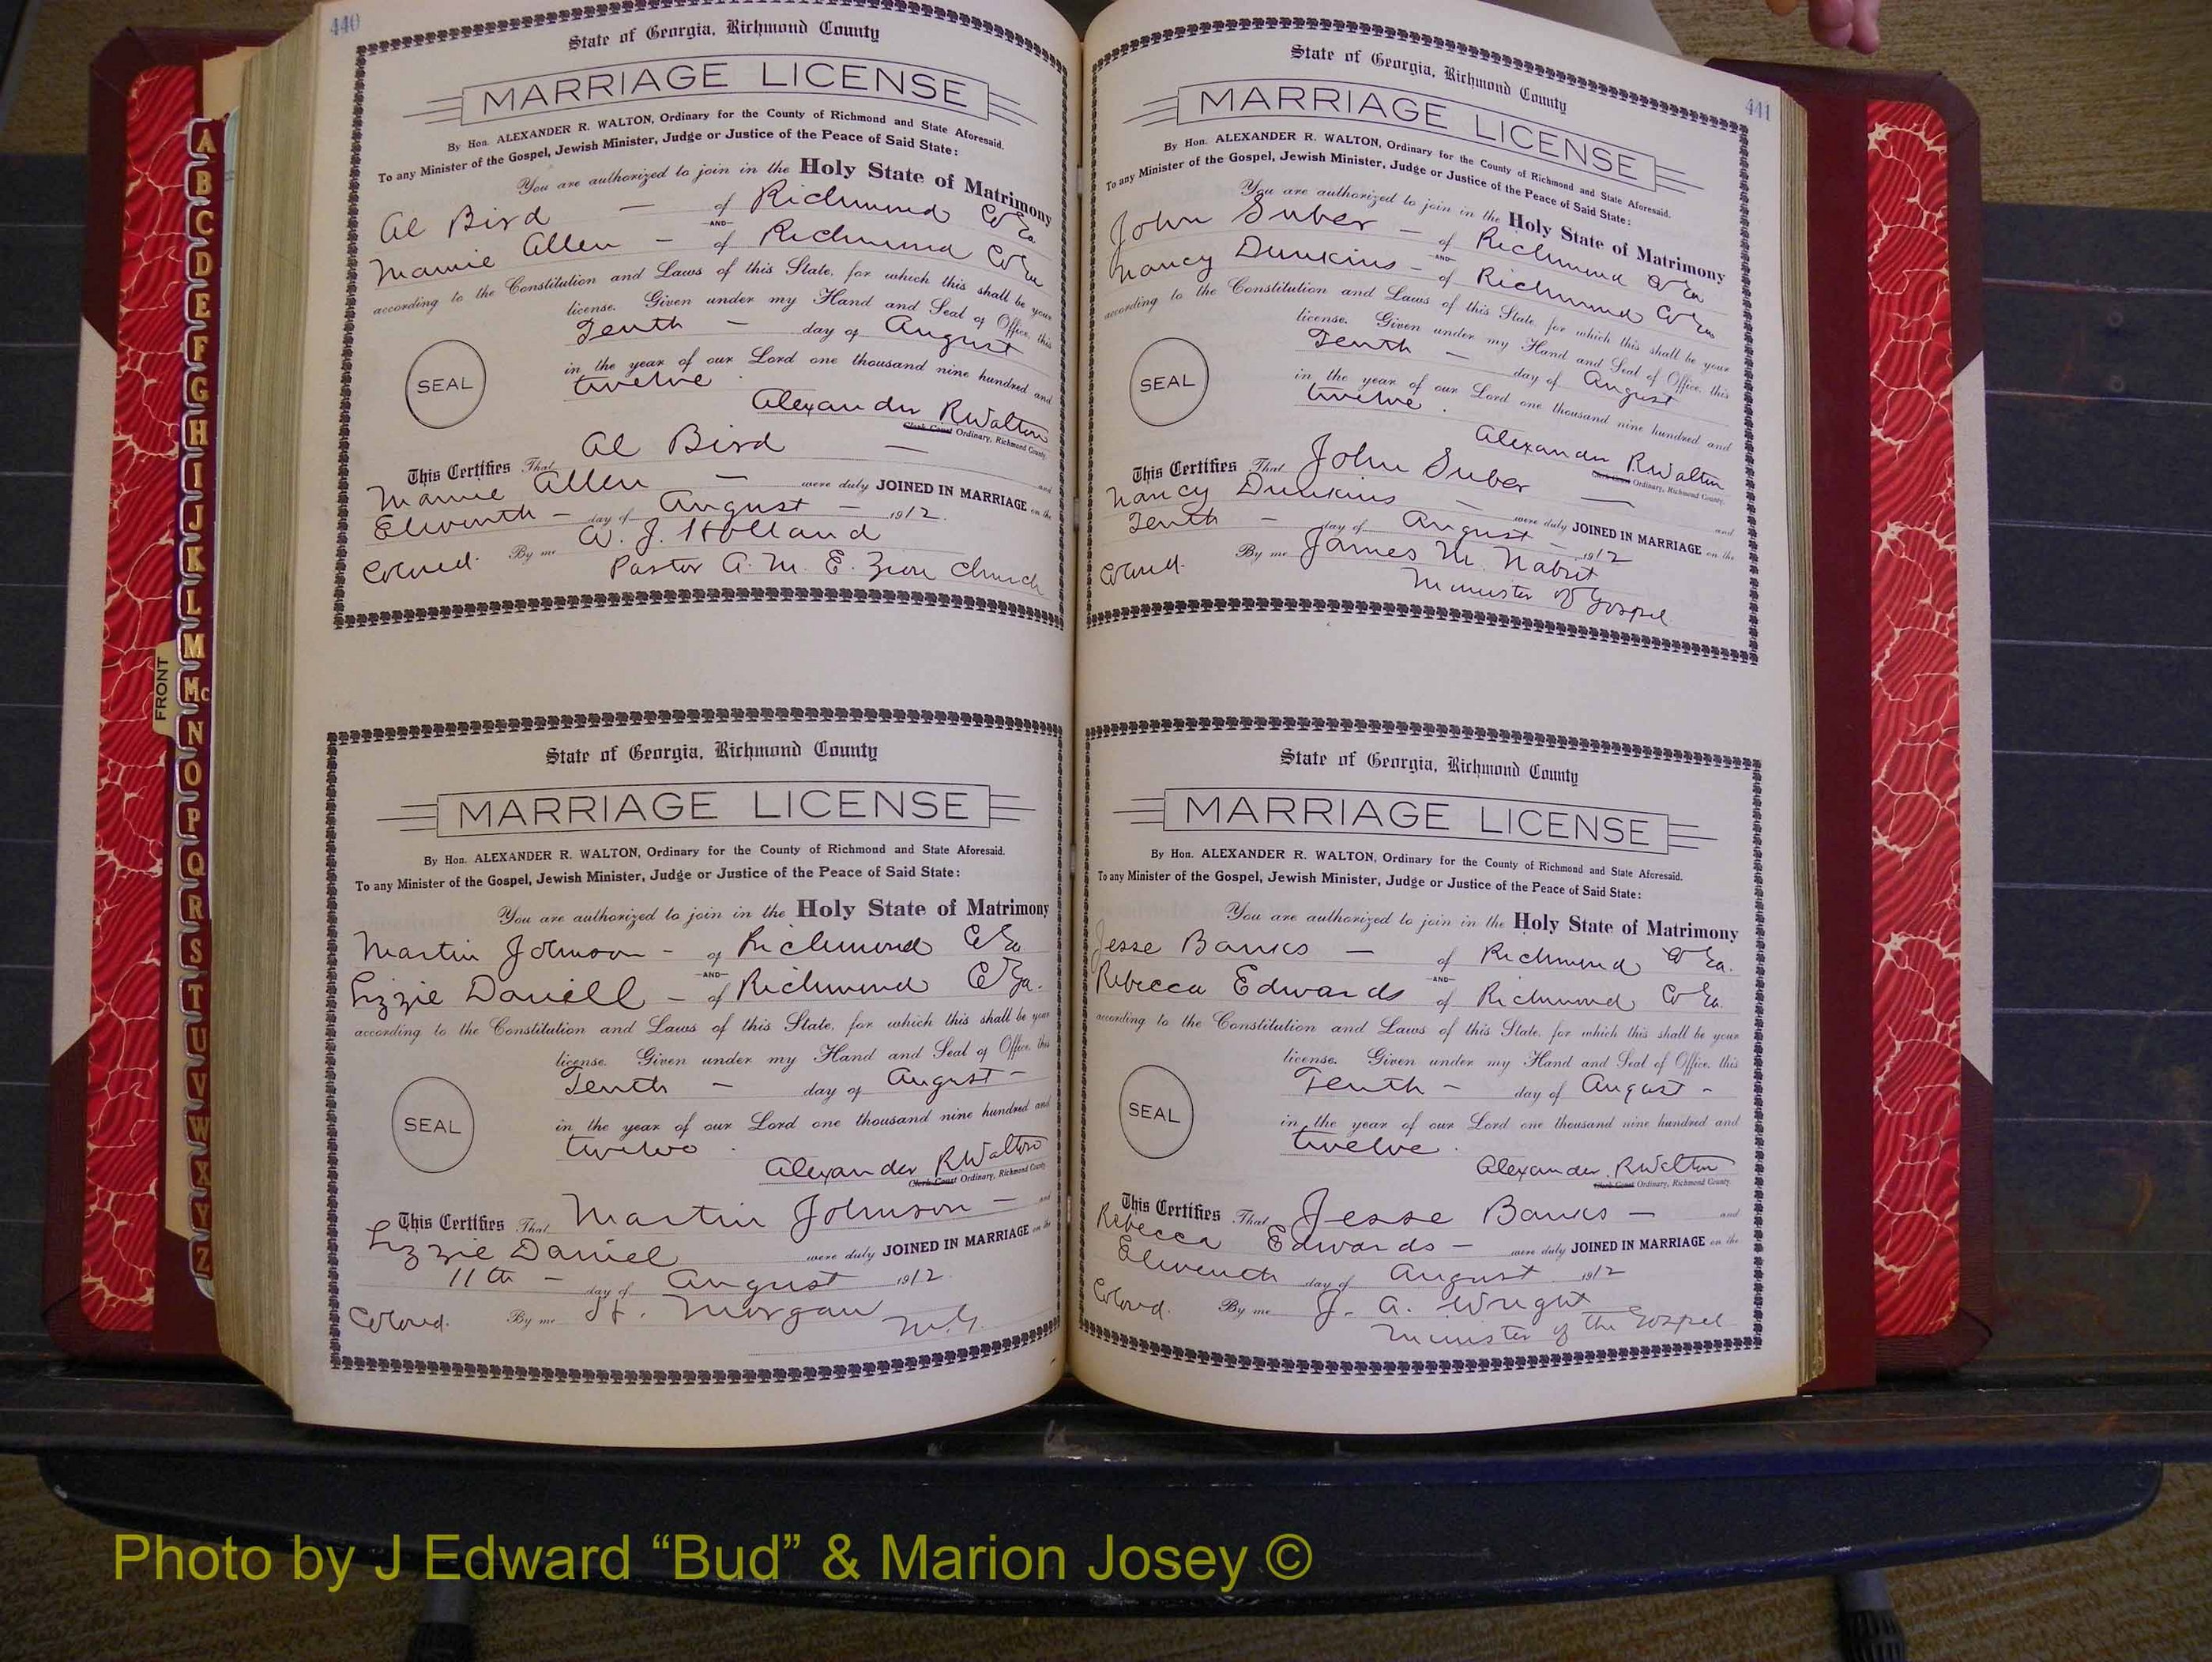 440
State of Georgia, Richmond County
MARRIAGE LICENSE
By Hon. ALEXANDER R. WALTON, Ordinary for the County of Richmond and State Aforesaid.
To any Minister of the Gospel, Jewish Minister, Judge or Justice of the Peace of Said State:
You are authorized to join in the Holy State of Matrimony
Al Bird — of Richmond Co Ga
AND
Mamie Allen — of Richmond Co Ga
according to the Constitution and Laws of this State, for which this shall be your
license. Given under my Hand and Seal of Office, this
Tenth — day of August
in the year of our Lord one thousand nine hundred and
twelve
SEAL
Alexander R Walton
Clerk Court Ordinary, Richmond County.
This Certifies That Al Bird — and
Mamie Allen — were duly JOINED IN MARRIAGE on the
Eleventh — day of August — 1912.
Colored. By me W. J. Holland
Pastor A. M. E. Zion Church
State of Georgia, Richmond County
MARRIAGE LICENSE
By Hon. ALEXANDER R. WALTON, Ordinary for the County of Richmond and State Aforesaid.
To any Minister of the Gospel, Jewish Minister, Judge or Justice of the Peace of Said State:
You are authorized to join in the Holy State of Matrimony
Martin Johnson — of Richmond Co Ga
AND
Lizzie Daniell — of Richmond Co Ga.
according to the Constitution and Laws of this State, for which this shall be your
license. Given under my Hand and Seal of Office, this
Tenth — day of August —
in the year of our Lord one thousand nine hundred and
twelve.
SEAL
Alexander R Walton
Clerk Court Ordinary, Richmond County
This Certifies That Martin Johnson — and
Lizzie Daniel were duly JOINED IN MARRIAGE on the
11th — day of August 1912
Colored. By me Morgan M.G.
441
State of Georgia, Richmond County
MARRIAGE LICENSE
By Hon. ALEXANDER R. WALTON, Ordinary for the County of Richmond and State Aforesaid.
To any Minister of the Gospel, Jewish Minister, Judge or Justice of the Peace of Said State:
You are authorized to join in the Holy State of Matrimony
John Suber — of Richmond Co Ga
AND
Nancy Dunkins — of Richmond Co Ga
according to the Constitution and Laws of this State, for which this shall be your
license. Given under my Hand and Seal of Office, this
Tenth — day of August
in the year of our Lord one thousand nine hundred and
twelve.
SEAL
Alexander R Walton
Clerk Court Ordinary, Richmond County.
This Certifies That John Suber — and
Nancy Dunkins — were duly JOINED IN MARRIAGE on the
Tenth — day of August — 1912
Colored. By me James M. Nabrit
Minister of Gospel
State of Georgia, Richmond County
MARRIAGE LICENSE
By Hon. ALEXANDER R. WALTON, Ordinary for the County of Richmond and State Aforesaid.
To any Minister of the Gospel, Jewish Minister, Judge or Justice of the Peace of Said State:
You are authorized to join in the Holy State of Matrimony
Jesse Banks — of Richmond Co Ga.
AND
Rebecca Edwards of Richmond Co Ga.
according to the Constitution and Laws of this State, for which this shall be your
license. Given under my Hand and Seal of Office, this
Tenth — day of August —
in the year of our Lord one thousand nine hundred and
twelve.
SEAL
Alexander R Walton
Clerk Court Ordinary, Richmond County.
This Certifies That Jesse Banks — and
Rebecca Edwards — were duly JOINED IN MARRIAGE on the
Eleventh day of August 1912
Colored. By me J. A. Wright
Minister of the Gospel
FRONT
A
B
C
D
E
F
G
H
I
J
K
L
M
Mc
N
O
P
Q
R
S
T
U
V
W
X
Y
Z
Photo by J Edward “Bud” & Marion Josey ©